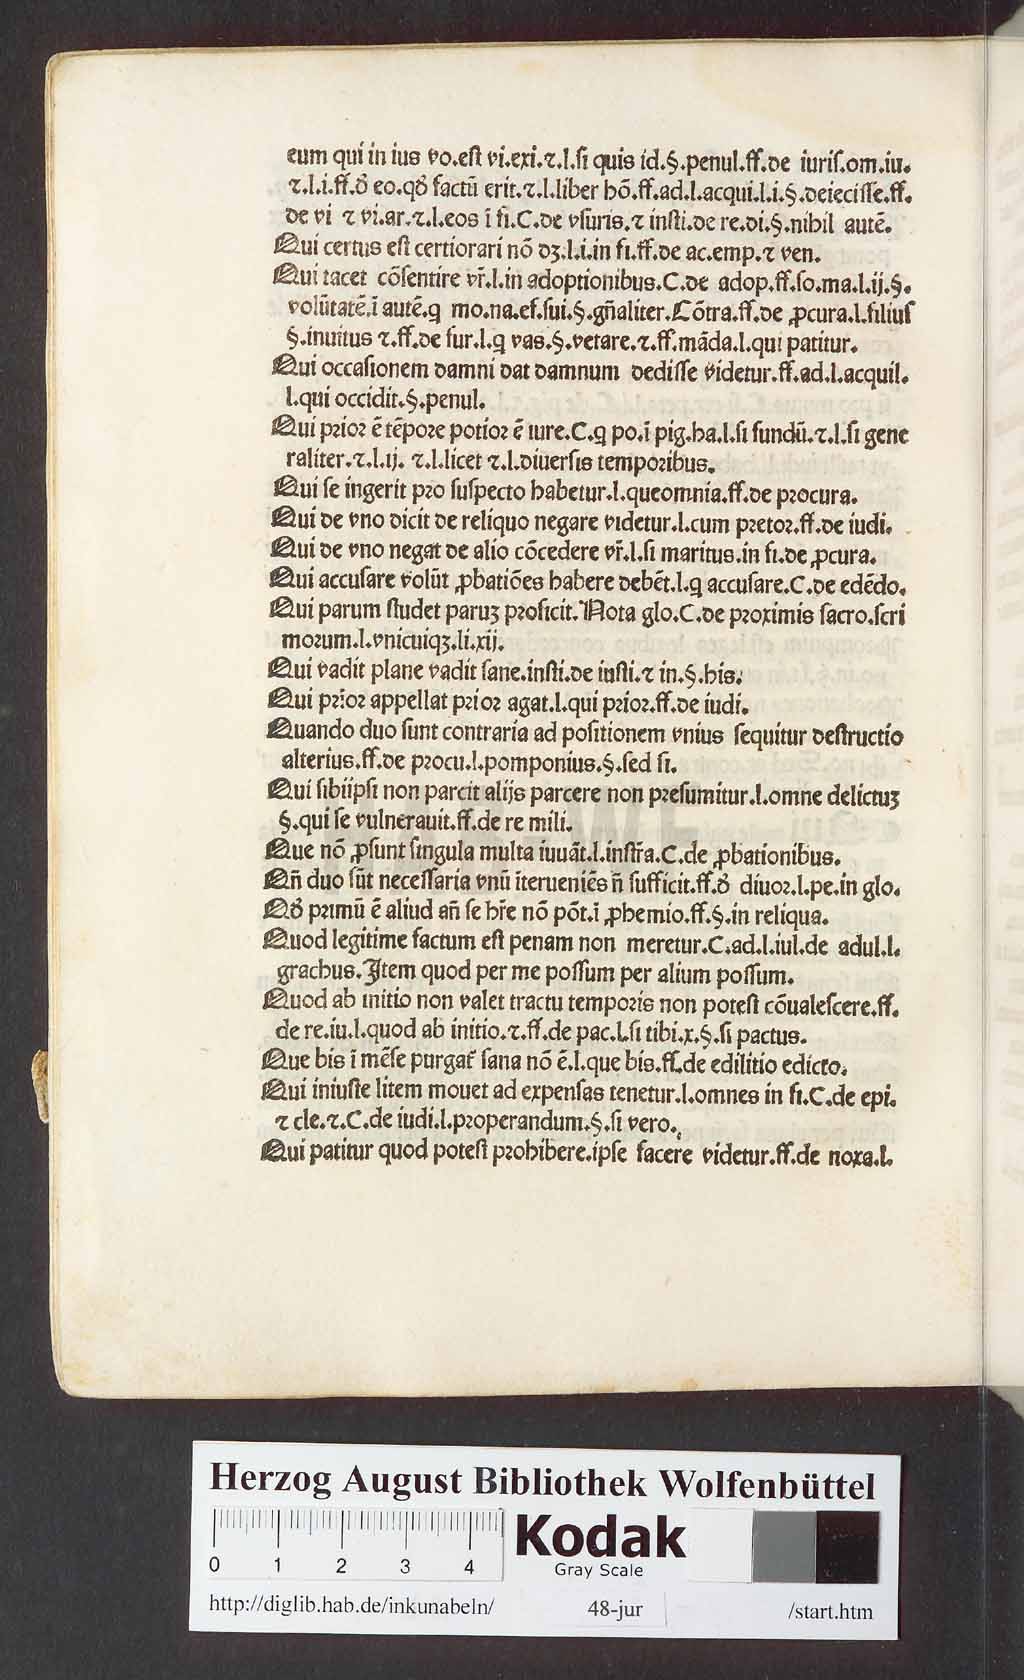 eum qui in ius vo.eſt vi.exi.⁊.l.ſi quis id.§.penul.ff.de iuriſ.om.iu.
⁊.l.i.ff.ꝺ̓ eo.qꝺ̓ factū erit.⁊.l.liber hō.ff.ad.l.acqui.l.i.§.deieciſſe.ff.
de vi ⁊ vi.ar.⁊.l.eos ī fi.C.de vſuris.⁊ inſti.de re.di.§.nihil autē.
Qui certus eſt certiorari nō dꝫ.l.i.in fi.ff.de ac.emp.⁊ ven.
Qui tacet cōſentire vr̄.l.in adoptionibus.C.de adop.ff.ſo.ma.l.ij.§.
volūtatē.ī autē.q mo.na.ef.ſui.§.gn̄aliter.Cōtra.ff.de ꝓcura.l.filiuſ
§.inuitus ⁊.ff.de fur.l.q vas.§.vetare.⁊.ff.māda.l.qui patitur.
Qui occaſionem damni dat damnum dediſſe videtur.ff.ad.l.acquil.
l.qui occidit.§.penul.
Qui prior ē tēpore potior ē iure.C.q po.ī pig.ha.l.ſi fundū.⁊.l.ſi gene
raliter.⁊.l.ij. ⁊.l.licet ⁊.l.diuerſis temporibus.
Qui ſe ingerit pro ſuſpecto habetur.l.queomnia.ff.de procura.
Qui de vno dicit de reliquo negare videtur.l.cum pretor.ff.de iudi.
Qui de vno negat de alio cōcedere vr̄.l.ſi maritus.in fi.de ꝓcura.
Qui accuſare volūt ꝓbatiōes habere debēt.l.q accuſare.C.de edēdo.
Qui parum ſtudet paruꝫ proficit.Nota glo.C.de proximis ſacro.ſcri
niorum.l.vnicuiqꝫ.li.xij.
Qui vadit plane vadit ſane.inſti.de iuſti.⁊ in.§.his.
Qui prior appellat prior agat.l.qui prior.ff.de iudi.
Quando duo ſunt contraria ad poſitionem vnius ſequitur deſtructio
alterius.ff.de procu.l.pomponius.§.ſed ſi.
Qui ſibiipſi non parcit alijs parcere non preſumitur.l.omne delictuꝫ
§.qui ſe vulnerauit.ff.de re mili.
Que nō ꝓſunt ſingula multa iuuāt.l.inſtr̄a.C.de ꝓbationibus.
Qn̄ duo ſūt neceſſaria vnū īterueniēs n̄ ſufficit.ff.ꝺ̓ diuor.l.pe.in glo.
Qꝺ̓ primū ē aliud an̄ ſe hr̄e nō pōt.ī ꝓhemio.ff.§.in reliqua.
Quod legitime factum eſt penam non meretur.C.ad.l.iul.de adul.l.
grachus.Item quod per me poſſum per alium poſſum.
Quod ab initio non valet tractu temporis non poteſt cōualeſcere.ff.
de re.iu.l.quod ab initio.⁊.ff.de pac.l.ſi tibi.x.§.ſi pactus.
Que bis ī mēſe purgat̄ ſana nō ē.l.que bis.ff.de edilitio edicto.
Qui iniuſte litem mouet ad expenſas tenetur.l.omnes in fi.C.de epi.
⁊ cle.⁊.C.de iudi.l.properandum.§.ſi vero.
Qui patitur quod poteſt prohibere.ipſe facere videtur.ff.de noxa.l.
HAB-WF
Herzog August Bibliothek Wolfenbüttel
0 1 2 3 4
Kodak
Gray Scale
http://diglib.hab.de/inkunabeln/ 48-jur /start.htm